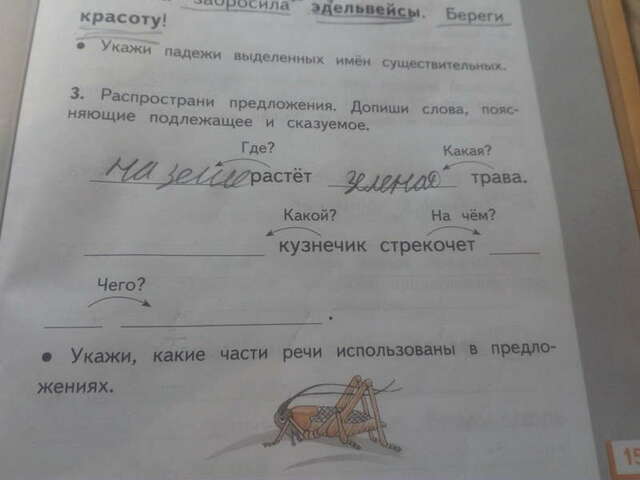 забросила эдельвейсы. Береги
красоту!
• Укажи падежи выделенных имён существительных.
3. Распространи предложения. Допиши слова, пояс-
няющие подлежащее и сказуемое.
Где? Какая?
на земле растёт зеленая трава.
Какой? На чём?
кузнечик стрекочет
Чего?
.
• Укажи, какие части речи использованы в предло-
жениях.
15